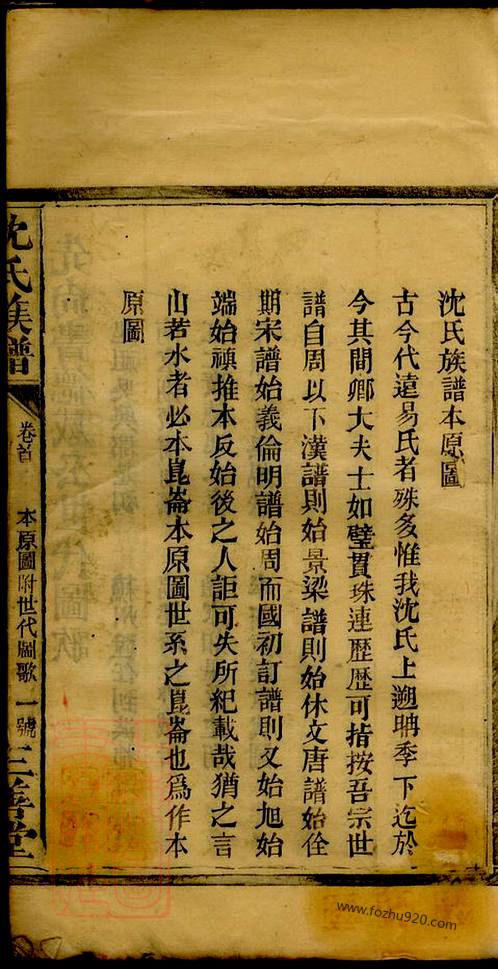 沈氏族譜本原圖
古今代遠易氏者殊多惟我沈氏上遡聃季下迄於
今其間卿大夫士如璧貫珠連歷歷可指按吾宗世
譜自周以下漢譜則始景梁譜則始休文唐譜始佺
期宋譜始義倫明譜始周而國初訂譜則又始旭始
端始禎推本反始後之人詎可失所紀載哉猶之言
山若水者必本崑崙本原圖世系之崑崙也爲作本
原圖
沈氏族譜
卷首
本原圖附世代圖歌
一號
三善堂
www.fozhu920.com